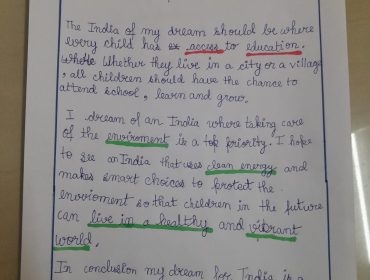 The India of my dream should be where
every child has access to education.
Whether they live in a city or a village
, all children should have the chance to
attend school, learn and grow.
I dream of an India where taking care
of the enviroment is a top priority. I hope
to see an India that uses clean energy and
makes smart choices to protect the
envrioment so that children in the future
can live in a healthy and vibrant
world.
In conclusion my dream for India is a